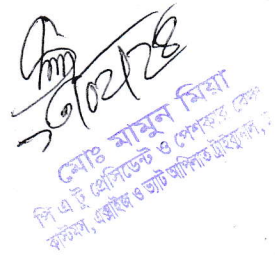 মোঃ মামুন মিয়া
পি এ টু প্রেসিডেন্ট ও পেশকার
কাস্টমস, এক্সাইজ ও ভ্যাট আপিলাত ট্রাইব্যুনাল,